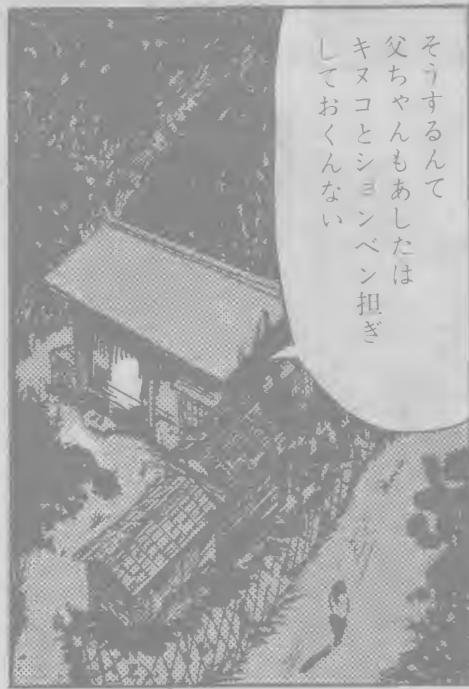 そうするんて
父ちゃんもあしたは
キヌコとションベン担ぎ
しておくんない